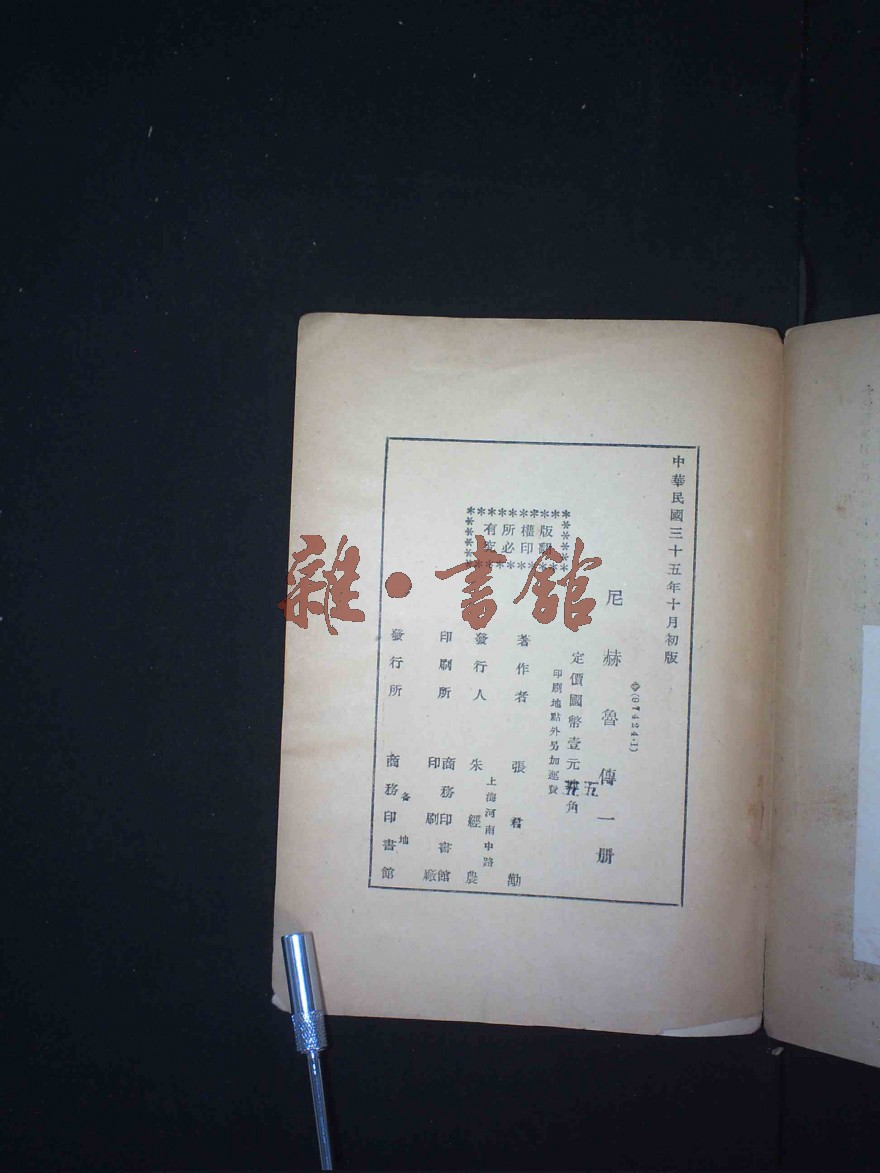 中華民國三十五年十月初版
(97424·1)
尼赫魯傳一册
定價國幣壹元五角
印刷地點外另加運費
版權所有
翻印必究
著作者 張君勱
發行人 朱經農
上海河南中路
印刷所 商務印書館
印刷廠
發行所 商務印書館
各地
雜·書館